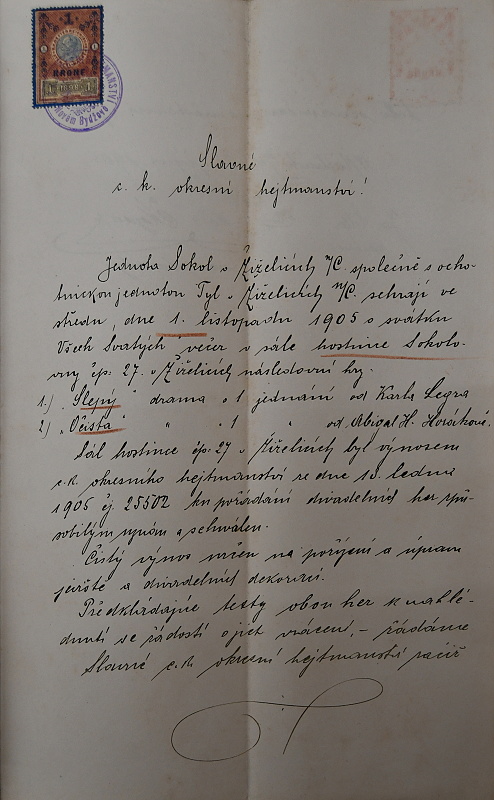 1
KRONE
Novém Bydžově
Slavné
c. k. okresní hejtmanství!
Jednota Sokol v Žiželicích n/C. společně s ocho-
tnickou jednotou Tyl v Žiželicích n/C. sehrají ve
středu, dne 1. listopadu 1905 o svátku
Všech Svatých večer v sále hostince Sokolo-
vny čp. 27. v Žiželicích následovní hry.
1.) „Slepý" drama o 1 jednání od Karla Legra
2) „Očista" „ „ 1 „ od Abigail H. Horákové.
Sál hostince čp. 27 v Žiželicích byl výnosem
c. k. okresního hejtmanství ze dne 13. ledna
1905 čj 25502 ku pořádání divadelních her způ-
sobilým uznán a schválen.
Čistý výnos určen na pořízení a úpravu
jeviště a divadelních dekorací.
Předkládajíce texty obou her k nahlé-
dnutí se žádostí o jich vrácení, – žádáme
Slavné c. k. okresní hejtmanství račiž